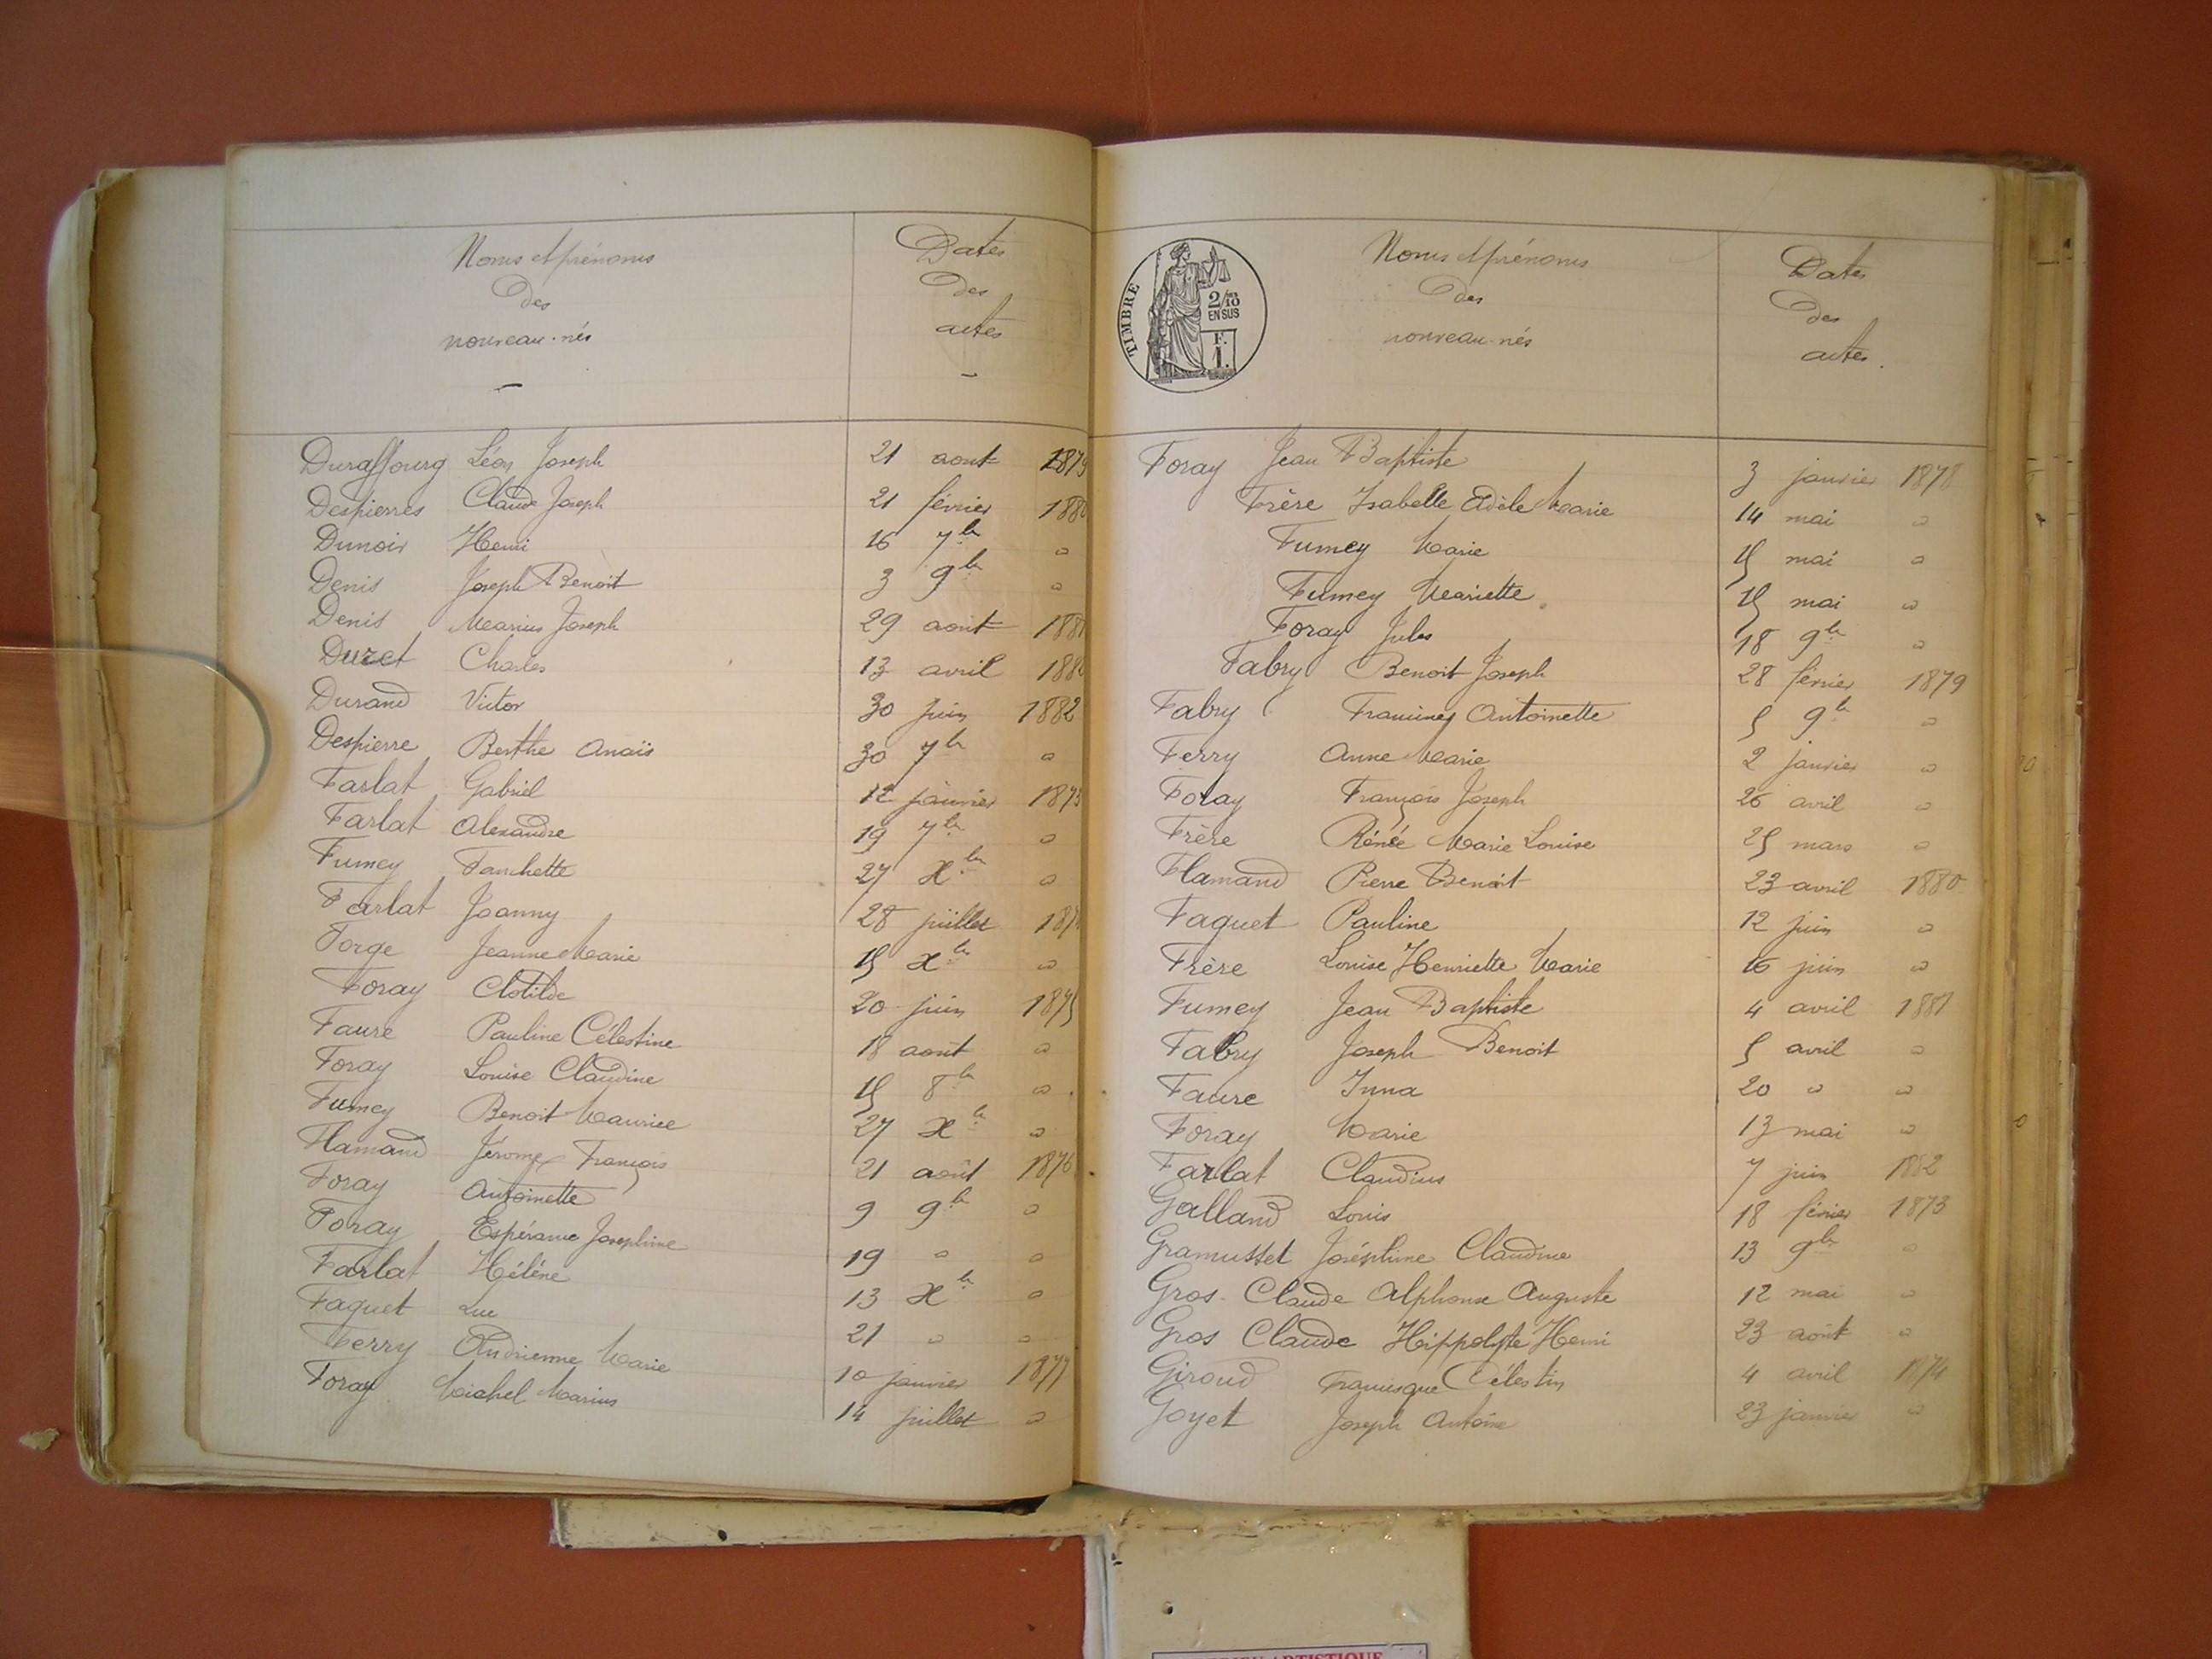 Noms et prénoms
des
nouveau-nés
Dates
des
actes
Duraffourg Léon Joseph 21 aout 1879
Despierres Claude Joseph 21 février 188
Dunoir Henri 16 7bre "
Denis Joseph Benoit 3 9bre "
Denis Marius Joseph 29 août 1881
Duret Charles 13 avril 188
Durand Victor 30 juin 1882
Despierre Berthe Anaïs 30 7bre "
Farlat Gabriel 12 janvier 1873
Farlat Alexandre 19 7bre "
Fumey Fanchette 27 Xbre "
Farlat Joanny 28 juillet 187
Forge Jeanne Marie 15 Xbre "
Foray Clotilde 20 juin 1875
Faure Pauline Célestine 18 août "
Foray Louise Claudine 15 8bre "
Fumey Benoit Maurice 27 Xbre "
Flamand Jérome François 21 août 1876
Foray Antoinette 9 9bre "
Foray Espérance Josephine 19 " "
Farlat Hélène 13 Xbre "
Faquet Luc 21 " "
Ferry Andrienne Marie 10 janvier 1877
Foray Michel Marius 14 juillet "
TIMBRE
2/10
EN SUS
F.
1.
Noms et prénoms
des
nouveau-nés
Dates
des
actes.
Foray Jean Baptiste 3 janvier 1878
Frère Isabelle Adèle Marie 14 mai "
Fumey Marie 15 mai "
Fumey Mariette 15 mai "
Foray Jules 18 9bre "
Fabry Benoit Joseph 28 février 1879
Fabry Francines Antoinette 5 9bre "
Ferry Anne Marie 2 janvier "
Foray François Joseph 26 avril "
Frère Rénée Marie Louise 25 mars "
Flamand Pierre Benoit 23 avril 1880
Faquet Pauline 12 juin "
Frère Louise Henriette Marie 16 juin "
Fumey Jean Baptiste 4 avril 1881
Fabry Joseph Benoit 5 avril "
Faure Inna 20 " "
Foray Marie 13 mai "
Farlat Claudius 7 juin 1882
Galland Louis 18 février 1873
Gramusset Joséphine Claudine 13 9bre "
Gros Claude Alphonse Auguste 12 mai "
Gros Claude Hippolyte Henri 23 août "
Giroud Francisque Célestin 4 avril 1874
Goyet Joseph Antoine 23 janvier "